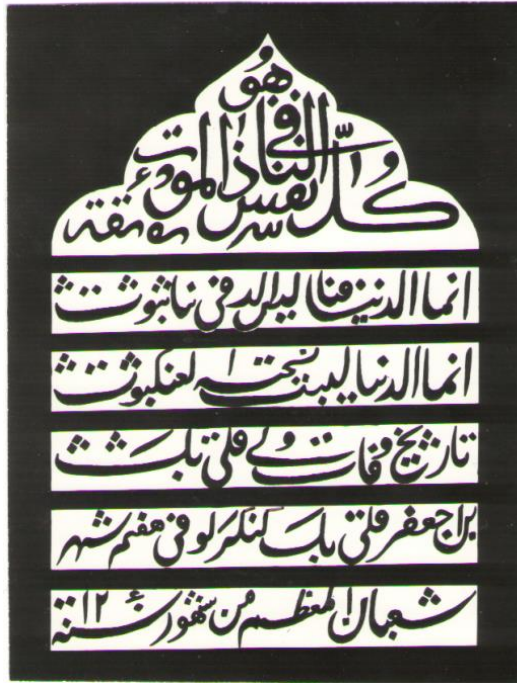 هو الفانی
کل نفس ذائقة الموت
انما الدنیا فنا لیس الدفی نیا ثبوت
انما الدنیا لیبت نسخته لعنکبوت
تاریخ وفات ولی قلی بک
بن جعفر قلی بک کنکرلو فی هفتم شهر
شعبان المعظم من شهور سنة ١٢